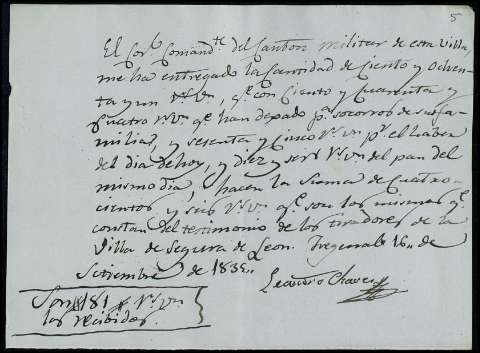 5
El Cor.l Comand.te del Canton militar de esta Villa,
me ha entregado la Cantidad de Ciento y Ochen-
ta y un r.s v.n, q.e con Ciento y Cuarenta y
Cuatro r.s v.n q.e han dejado p.a socorros de sus fa-
milias, y sesenta y cinco r.s v.n p.r el haber
del dia de hoy, y diez y seis r.s v.n del pan del
mismo dia, hacen la Suma de Cuatro-
cientos y seis r.s v.n q.e son los mismos q.e
constan del testimonio de los tiradores de la
Villa de Segura de Leon. Fregenal 16 de
Setiembre de 1835.
Leandro Chaves
Son 181 r.s v.n
los recibidos.